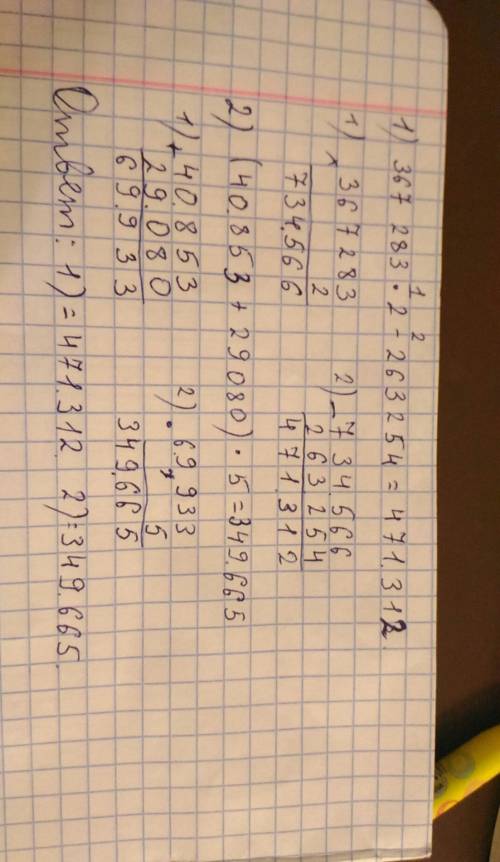 1) 367 283 · 2 - 263254 = 471.312.
1 2
1) × 367283 2) - 734.566
2 263254
734.566 471.312
2) (40.853 + 29080) · 5 = 349.665
1) + 40.853 2) · 69.933
29.080 5
69.933 349.665
Ответ: 1) = 471.312. 2) = 349.665.